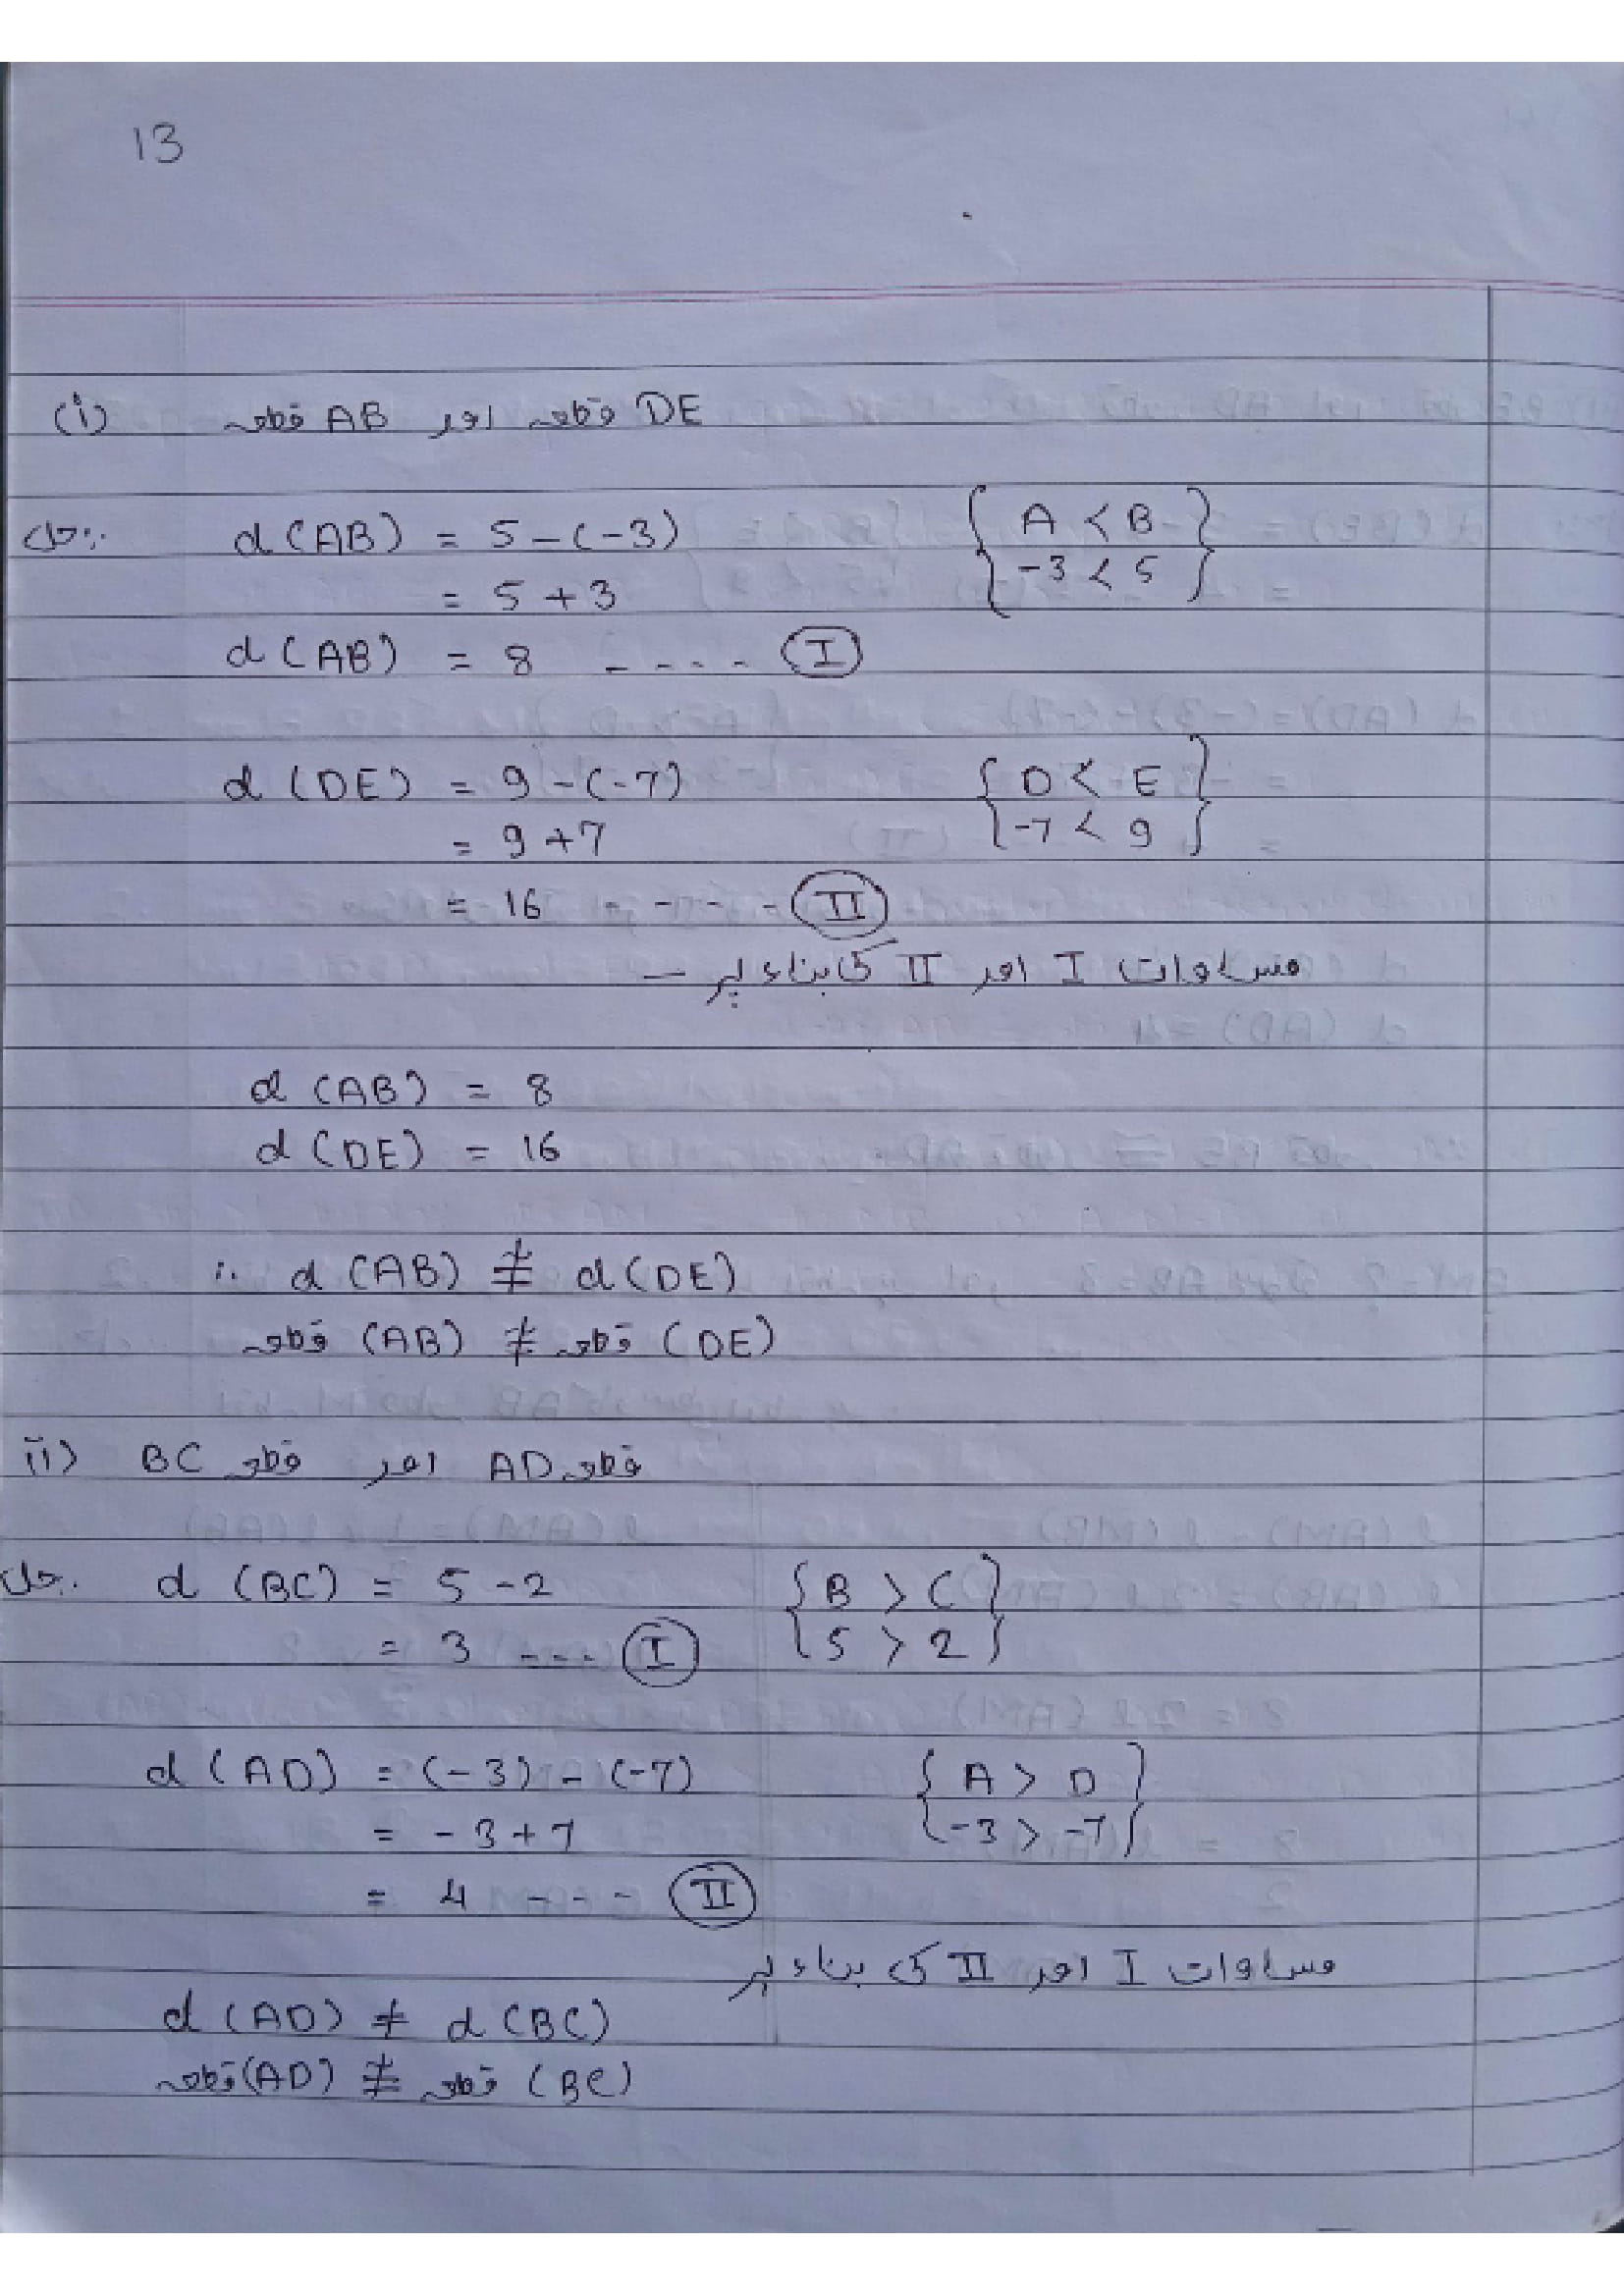 13
(i) قطعہ AB اور قطعہ DE
حل:. d(AB) = 5-(-3) { A < B }
= 5+3 { -3 < 5 }
d(AB) = 8 ---- (I)
d(DE) = 9-(-7) { D < E }
= 9+7 { -7 < 9 }
= 16 ----- (II)
مساوات I اور II کی بناء پر —
d(AB) = 8
d(DE) = 16
∴ d(AB) ≇ d(DE)
قطعہ (AB) ≠ قطعہ (DE)
ii) BC قطعہ اور AD قطعہ
حل:. d(BC) = 5-2 { B > C }
= 3 --- (I) { 5 > 2 }
d(AD) = (-3)-(-7) { A > D }
= -3+7 { -3 > -7 }
= 4 --- (II)
مساوات I اور II کی بناء پر
d(AD) ≠ d(BC)
قطعہ (AD) ≇ قطعہ (BC)